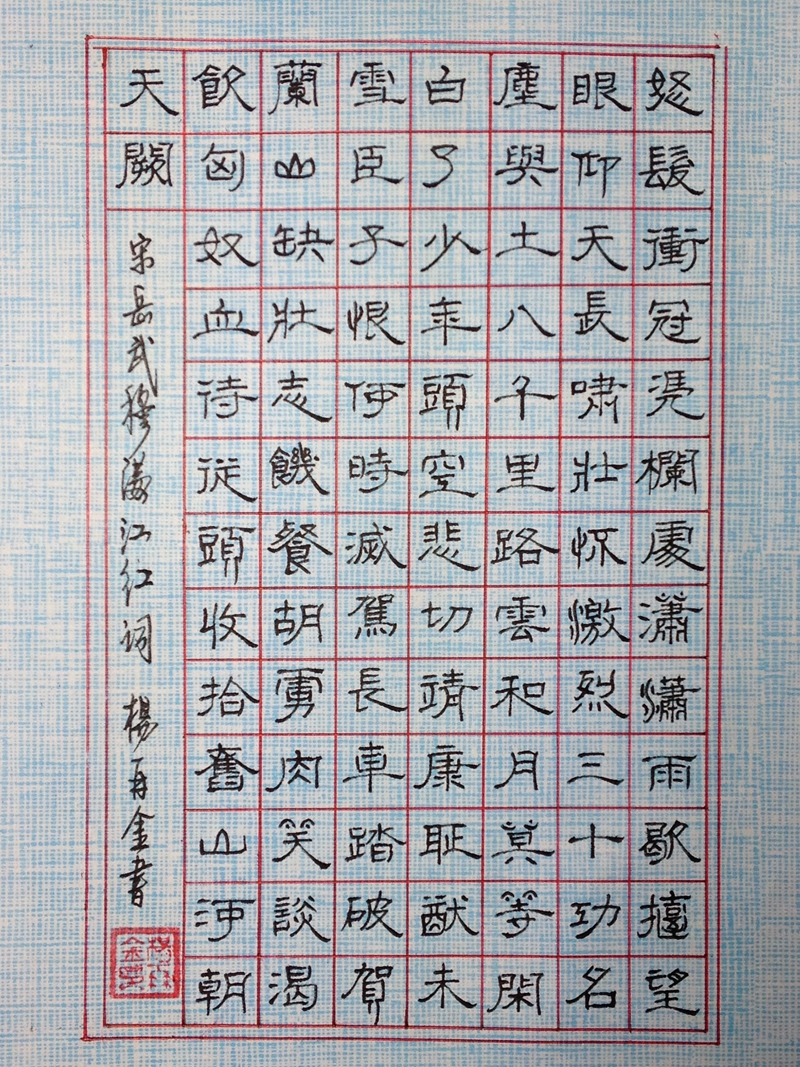 怒髮衝冠凴欄處瀟瀟雨歇擡望
眼仰天長嘯壯怀激烈三十功名
塵與土八千里路雲和月莫等閑
白了少年頭空悲切靖康耻猷未
雪臣子恨何時滅駕長車踏破賀
蘭山缺壯志饑餐胡虜肉笑談渴
飲匈奴血待從頭收拾舊山河朝
天闕
宋岳武穆滿江红词 楊再金書